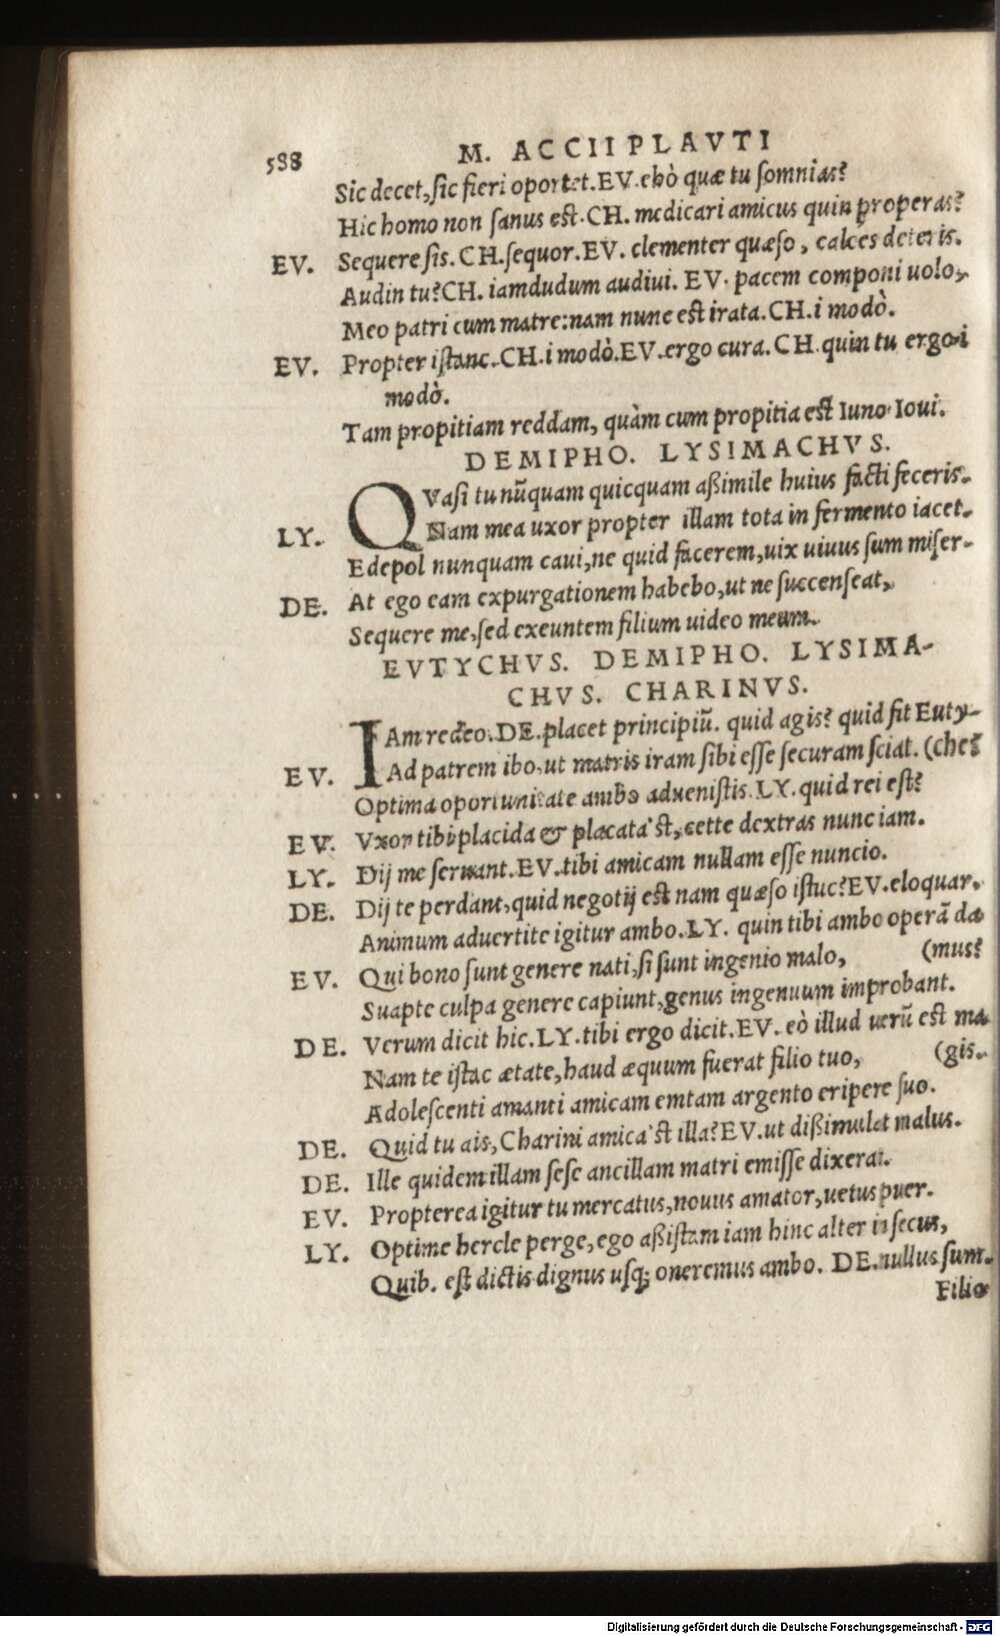 588 M. ACCII PLAVTI
Sic decet, sic fieri oportet. EV. ehò quæ tu somnias?
Hic homo non sanus est. CH. medicari amicus quin properas?
EV. Sequere sis. CH. sequor. EV. clementer quæso, calces deteris.
Audin tu? CH. iamdudum audiui. EV. pacem componi uolo,
Meo patri cum matre: nam nunc est irata. CH. i modò.
EV. Propter istanc. CH. i modò. EV. ergo cura. CH. quin tu ergo i
modò.
Tam propitiam reddam, quàm cum propitia est Iuno Ioui.
DEMIPHO. LYSIMACHVS.
QVasi tu nũquam quicquam aßimile huius facti feceris.
LY. Nam mea uxor propter illam tota in fermento iacet.
Edepol nunquam caui, ne quid facerem, uix uiuus sum miser.
DE. At ego eam expurgationem habebo, ut ne succenseat,
Sequere me, sed exeuntem filium uideo meum.
EVTYCHVS. DEMIPHO. LYSIMA-
CHVS. CHARINVS.
IAm redeo. DE. placet principiũ. quid agis? quid fit Euty-
EV. Ad patrem ibo, ut matris iram sibi esse securam sciat. (che?
Optima oportunitate ambo aduenistis. LY. quid rei est?
EV. Vxor tibi placida & placata'st, cette dextras nunc iam.
LY. Dij me seruant. EV. tibi amicam nullam esse nuncio.
DE. Dij te perdant, quid negotij est nam quæso istuc? EV. eloquar.
Animum aduertite igitur ambo. LY. quin tibi ambo operã da
EV. Qui bono sunt genere nati, si sunt ingenio malo, (mus?
Suapte culpa genere capiunt, genus ingenuum improbant.
DE. Verum dicit hic. LY. tibi ergo dicit. EV. eò illud uerũ est ma
Nam te istac ætate, haud æquum fuerat filio tuo, (gis.
Adolescenti amanti amicam emtam argento eripere suo.
DE. Quid tu ais, Charini amica'st illa? EV. ut dißimulat malus.
DE. Ille quidem illam sese ancillam matri emisse dixerat.
EV. Propterea igitur tu mercatus, nouus amator, uetus puer.
LY. Optime hercle perge, ego aßistam iam hinc alter insecus,
Quib. est dictis dignus usq; oneremus ambo. DE. nullus sum.
Filio
Digitalisierung gefördert durch die Deutsche Forschungsgemeinschaft - DFG